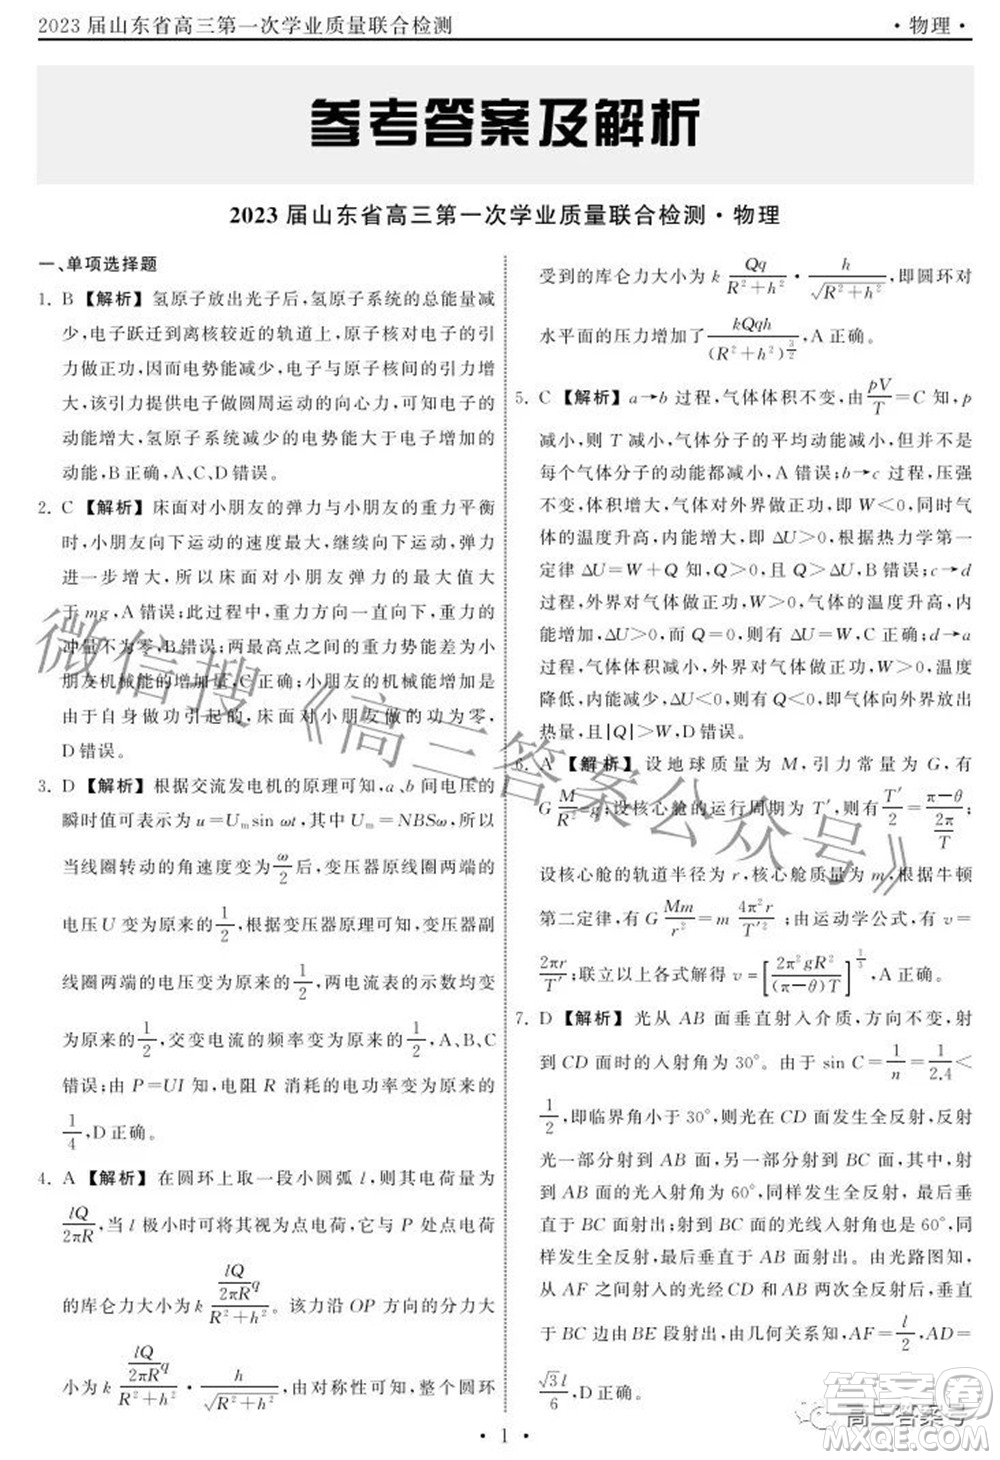 2023 届山东省高三第一次学业质量联合检测
·物理·
参考答案及解析
2023 届山东省高三第一次学业质量联合检测·物理
一、单项选择题
1. B 【解析】氢原子放出光子后,氢原子系统的总能量减
少,电子跃迁到离核较近的轨道上,原子核对电子的引
力做正功,因而电势能减少,电子与原子核间的引力增
大,该引力提供电子做圆周运动的向心力,可知电子的
动能增大,氢原子系统减少的电势能大于电子增加的
动能,B正确,A、C、D错误。
2. C 【解析】床面对小朋友的弹力与小朋友的重力平衡
时,小朋友向下运动的速度最大,继续向下运动,弹力
进一步增大,所以床面对小朋友弹力的最大值大
于 mg,A 错误;此过程中,重力方向一直向下,重力的
冲量不为零,B错误;两最高点之间的重力势能差为小
朋友机械能的增加量,C正确;小朋友的机械能增加是
由于自身做功引起的,床面对小朋友做的功为零,
D 错误。
3. D 【解析】根据交流发电机的原理可知,a、b 间电压的
瞬时值可表示为 u=Uₘsin ωt,其中 Uₘ=NBSω,所以
当线圈转动的角速度变为 ω/2 时,变压器原线圈两端的
电压 U 变为原来的 1/2,根据变压器原理可知,变压器副
线圈两端的电压变为原来的 1/2,两电流表的示数均变
为原来的 1/2,交变电流的频率变为原来的 1/2,A、B、C
错误;由 P=UI 知,电阻 R 消耗的电功率变为原来的
1/4,D 正确。
4. A 【解析】在圆环上取一段小圆弧 l,则其电荷量为
lQ/2πR,当 l 极小时可将其视为点电荷,它与 P 处点电荷
的库仑力大小为 k (lQ/2πR)q/(R²+h²)。该力沿 OP 方向的分力大
小为 k (lQ/2πR)q/(R²+h²)·h/√(R²+h²),由对称性可知,整个圆环
受到的库仑力大小为 k Qq/(R²+h²)·h/√(R²+h²),即圆环对
水平面的压力增加了 kQqh/(R²+h²)^(3/2),A 正确。
5. C 【解析】a→b 过程,气体体积不变,由 pV/T=C 知,p
减小,则 T 减小,气体分子的平均动能减小,但并不是
每个气体分子的动能都减小,A 错误;b→c 过程,压强
不变,体积增大,气体对外界做功,即 W<0,同时气体
的温度升高,内能增大,即 ΔU>0,根据热力学第一
定律 ΔU=W+Q 知,Q>0,即气体吸热,B错误;c→d
过程,外界对气体做功,即 W>0,气体的温度升高,内
能增大,即 ΔU>0,而 Q=0,C 正确;d→a
过程,气体体积减小,外界对气体做功,即 W>0,温度
降低,内能减小,即 ΔU<0,则 Q<0,即气体对外放出
热量,且|Q|>W,D错误。
6. A 【解析】设地球质量为 M,引力常量为 G,有
G M/R²=g;设核心舱的运行周期为 T′,则有 (T′/2)=(π-θ)/(2π/T),
设核心舱的轨道半径为 r,核心舱质量为 m,根据牛顿
第二定律,有 G Mm/r²=m 4π²r/T′²;由运动学公式,有 v=
2πr/T′;联立以上各式解得 v=[2π²gR²/(π-θ)T]^(1/3),A 正确。
7. D 【解析】光从 AB 面垂直射入介质,方向不变,射
到 CD 面时的入射角为 30°。由于 sin C=1/n=1/2.4<
1/2,即临界角小于 30°,则光在 CD 面发生全反射,反射
光一部分射到 AB 面,一部分射到 BC 面。射到
AB 面的光线入射角为 60°,同样发生全反射,最后垂
直于 BC 面射出;射到 BC 面的光线入射角也是 60°,
同样发生全反射,最后垂直于 AB 面射出。由光路图知,
从 AF 之间射入的光经 CD 和 AB 两次全反射后,垂直
于 BC 边由 BE 段射出,由几何关系知,AF=l/2,AD=
√3l/6,D 正确。
·1·
微信搜《高三答案公众号》
高三答案号
答案圈
MXQE.COM